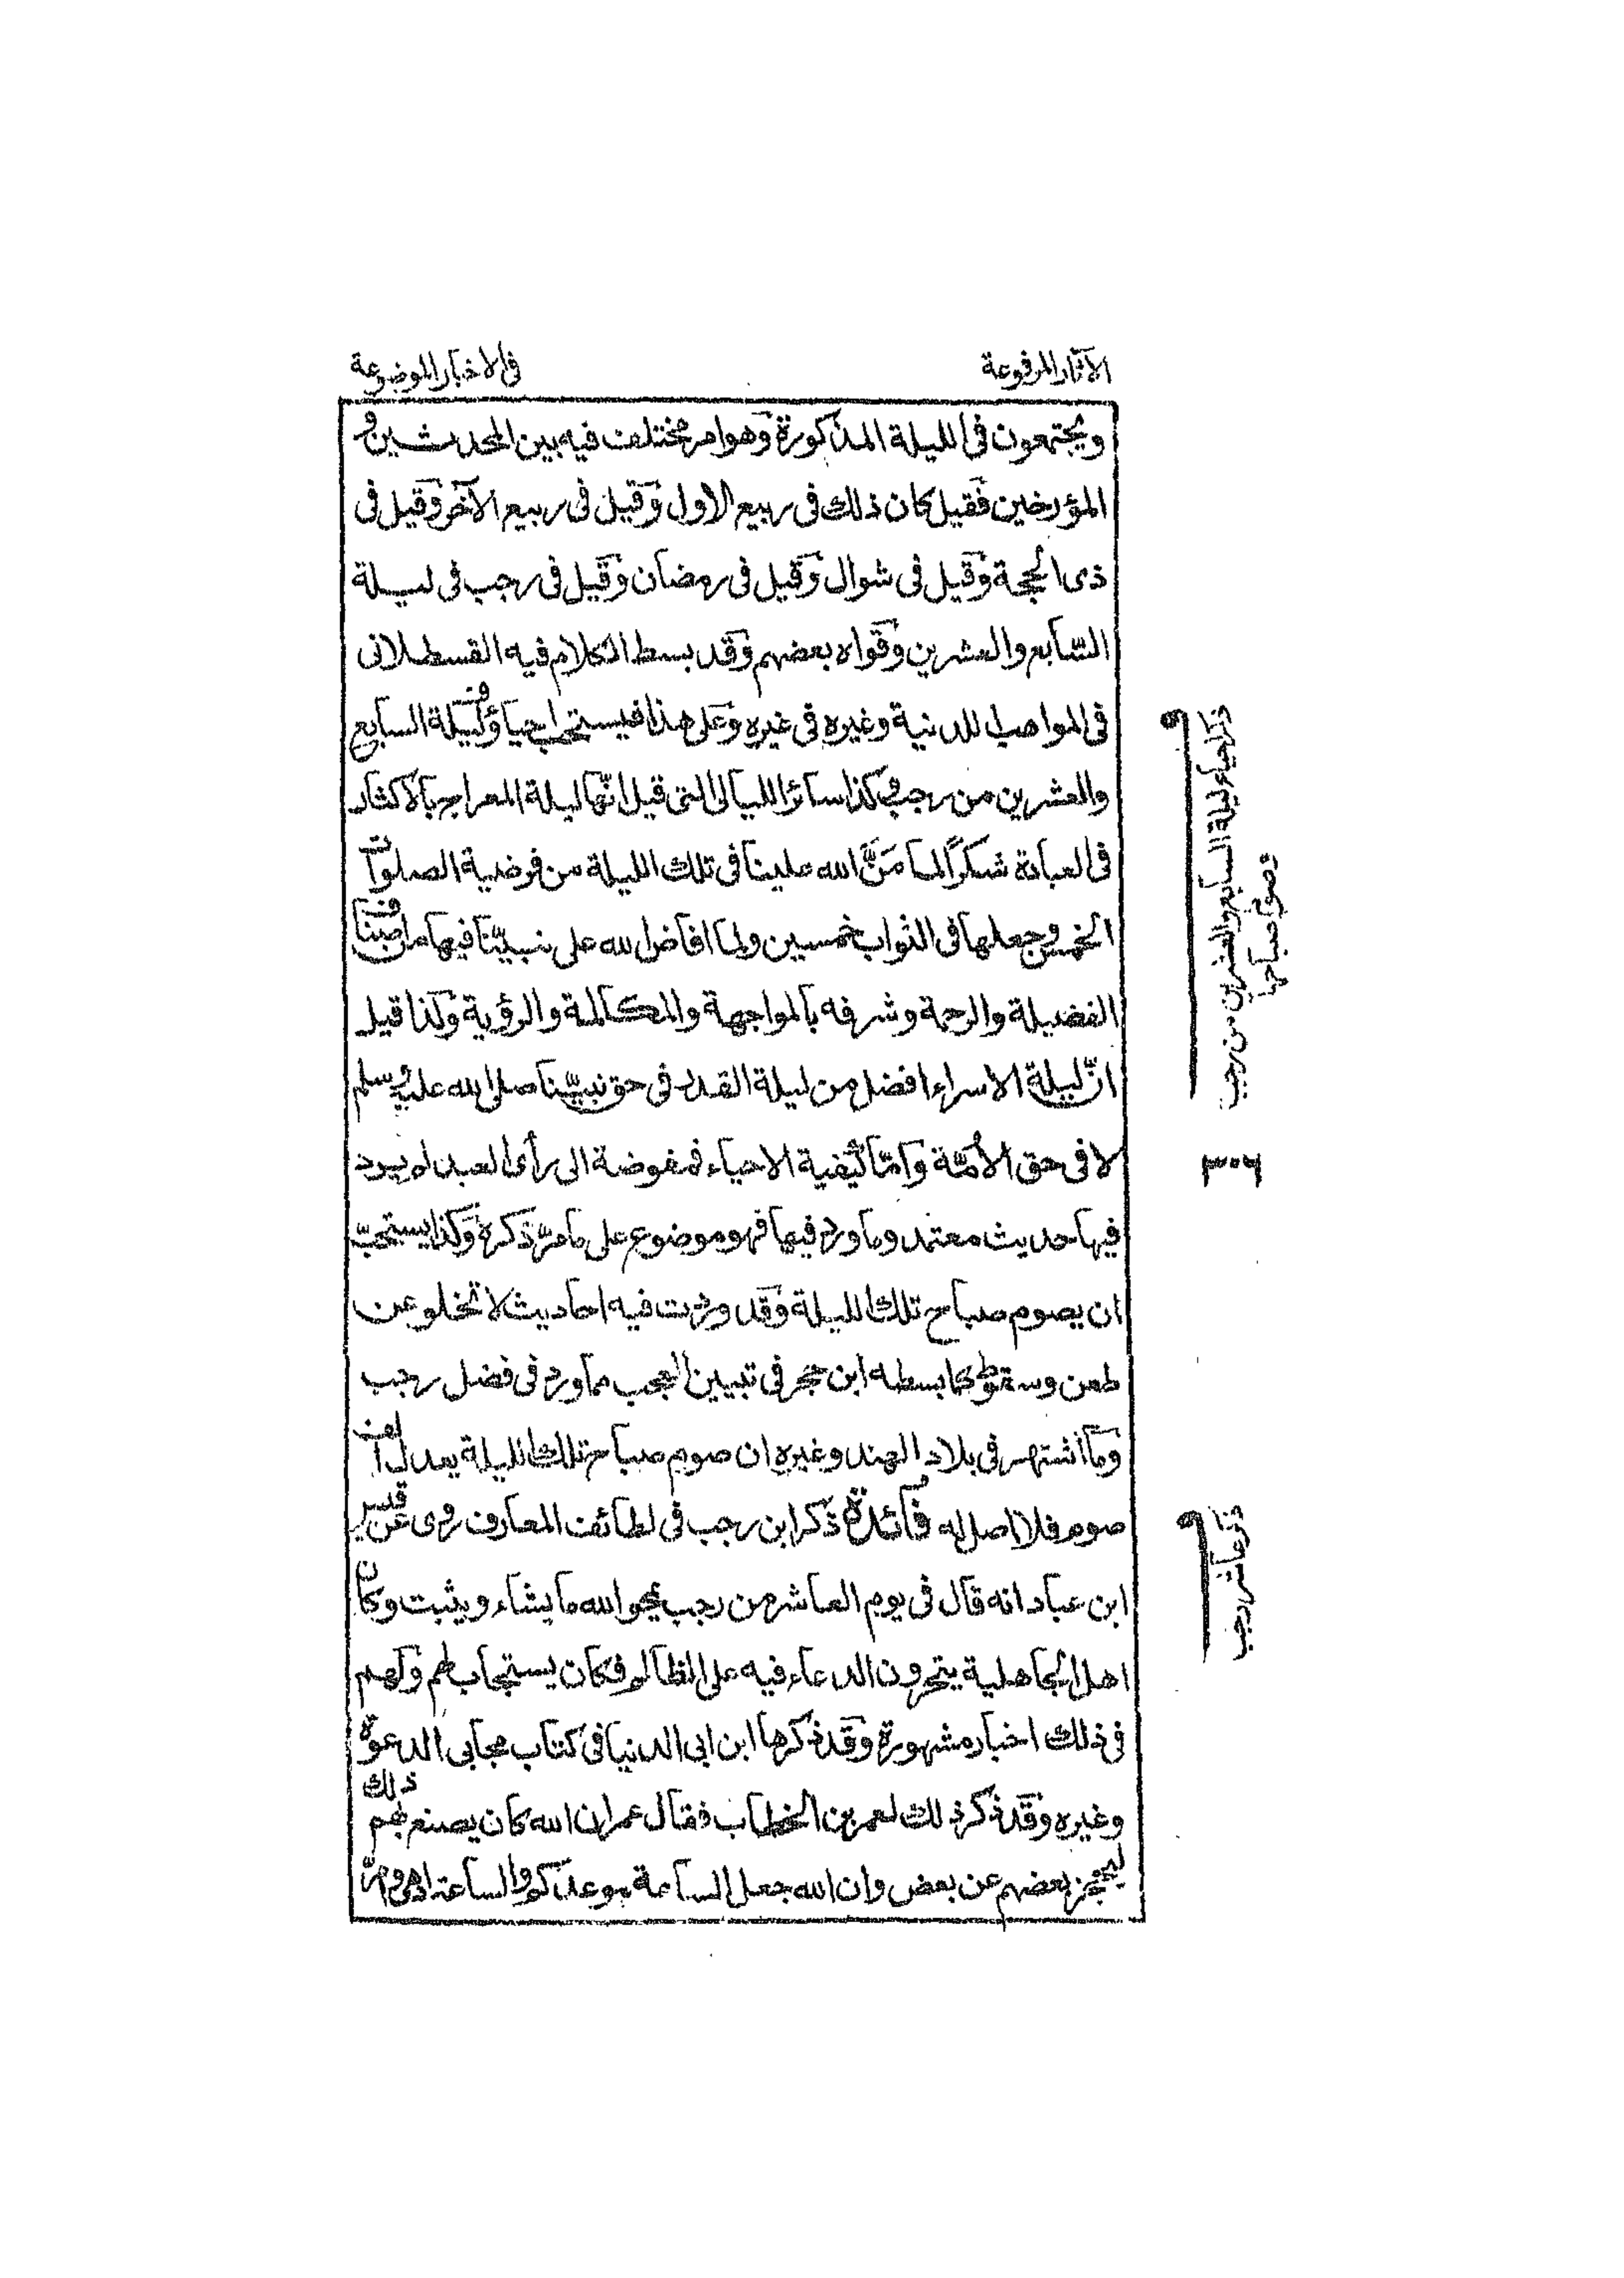 الآثار المرفوعة
فى الاخبار الموضوعة
ويجتمعون فى الليلة المذكورة وهو امر مختلف فيه بين المحدثين و
المؤرخين فقيل كان ذلك فى ربيع الاول وقيل فى ربيع الآخر وقيل فى
ذى الحجة وقيل فى شوال وقيل فى رمضان وقيل فى رجب فى ليلة
السابع والعشرين وقواه بعضهم وقد بسط الكلام فيه القسطلانى
فى المواهب اللدنية وغيره فى غيره وعلى هذا فيستحب احياء ليلة السابع
والعشرين من رجب وكذا سائر الليالى التى قيل انّها ليلة المعراج بالاكثار
فى العبادة شكراً لما مَنَّ الله علينا فى تلك الليلة من فرضية الصلوات
الخمس وجعلها فى الثواب خمسين ولما افاض الله على نبيّنا فيها من اصناف
الفضيلة والرحمة وشرفه بالمواجهة والمكالمة والرؤية وكذا قيل
انّ ليلة الاسراء افضل من ليلة القدر فى حق نبيّنا صلى الله عليه وسلم
لا فى حق الأمّة وامّا كيفية الاحياء فمفوضة الى رأى العبد لم يرد
فيها حديث معتمد وما ورد فيها فهو موضوع على ما مرّ ذكره وكذا يستحبّ
ان يصوم صباح تلك الليلة وقد وردت فيه احاديث لا تخلو عن
طعن وسقوط كما بسطه ابن حجر فى تبيين العجب مما ورد فى فضل رجب
وما اشتهر فى بلاد الهند وغيره ان صوم صباح تلك الليلة يعدل الف
صوم فلا اصل له فائدة ذكر ابن رجب فى لطائف المعارف روى عن قيس
ابن عباد انه قال فى يوم العاشر من رجب يمحو الله ما يشاء ويثبت وكان
اهل الجاهلية يتحرون الدعاء فيه على الظالم فكان يستجاب لهم ولهم
فى ذلك اخبار مشهورة وقد ذكرها ابن ابى الدنيا فى كتاب مجابى الدعوة
وغيره وقد ذكر ذلك لعمر بن الخطاب فقال عمر ان الله كان يصنع ذلك بهم
ليحجز بعضهم عن بعض وان الله جعل الساعة موعدكم والساعة ادهى وامرّ
ذكر احياء ليلة السابع والعشرين من رجب
وصوم صباحها
٣٠٦
ذكر عاشر رجب